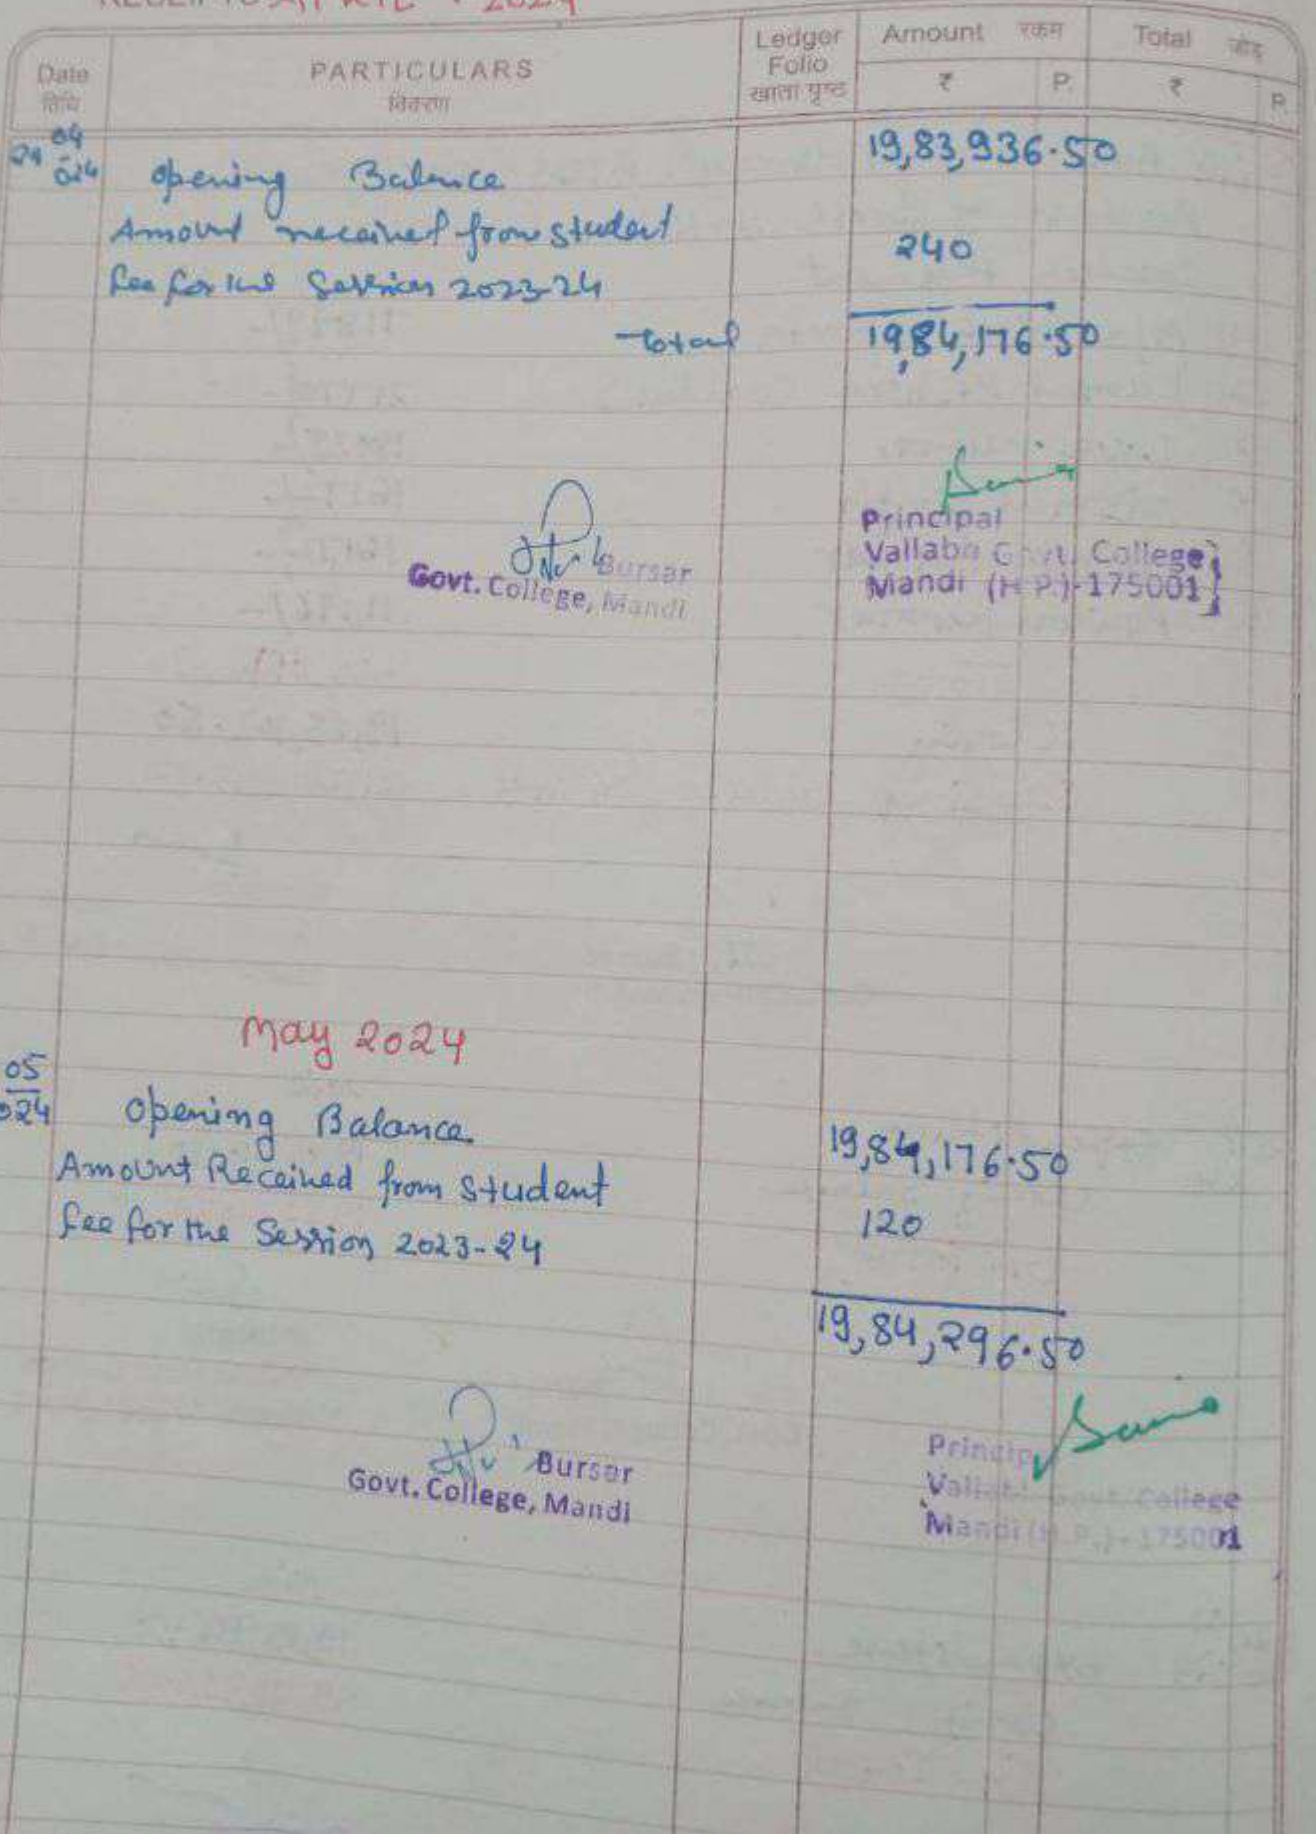 RECEIPTS APRIL - 2024
Date
तिथि
PARTICULARS
विवरण
Ledger
Folio
खाता पृष्ठ
Amount रकम
₹ P.
Total जोड़
₹ P.
04
opening Balance 19,83,936.50
Amount received from student
fee for the Session 2023-24 240
Total 19,84,176.50
Bursar
Govt. College, Mandi
Principal
Vallabh Govt. College
Mandi (H.P.)-175001
May 2024
05
024
Opening Balance 19,84,176.50
Amount Received from Student
fee for the Session 2023-24 120
19,84,296.50
Bursar
Govt. College, Mandi
Principal
Vallabh Govt. College
Mandi (H.P.)-175001